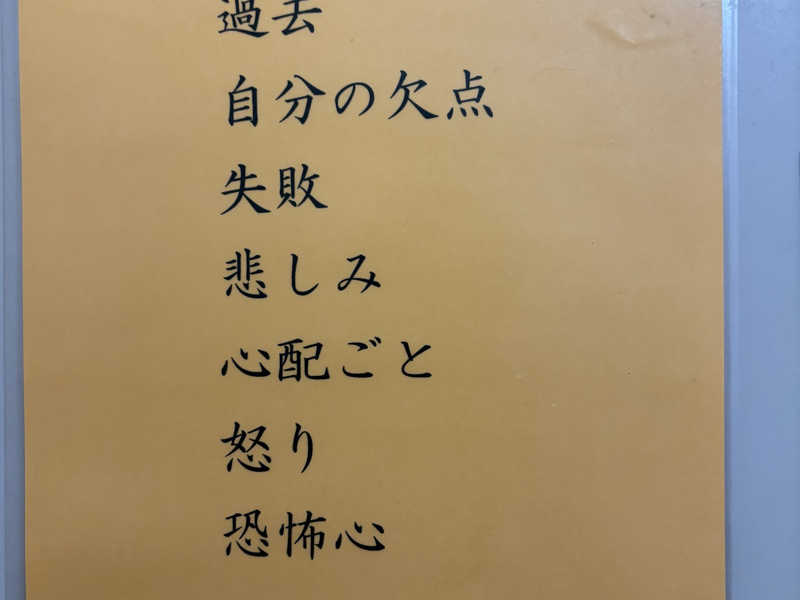 過去
自分の欠点
失敗
悲しみ
心配ごと
怒り
恐怖心